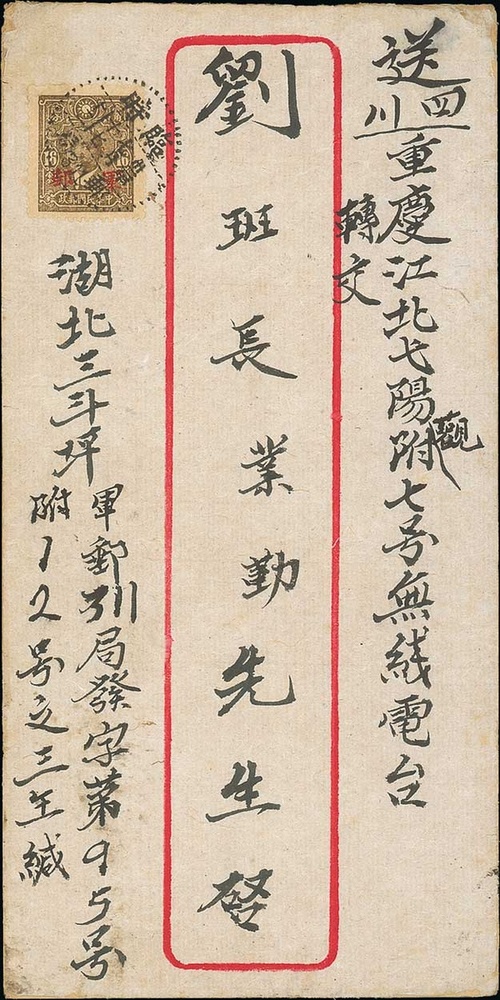 送四川重慶江北七陽觀附七号無线電台
轉交
劉班長業勤先生啓
湖北三斗坪
軍郵引局發字第95号
附12号之三王緘
軍郵
16
16
中華民國郵政